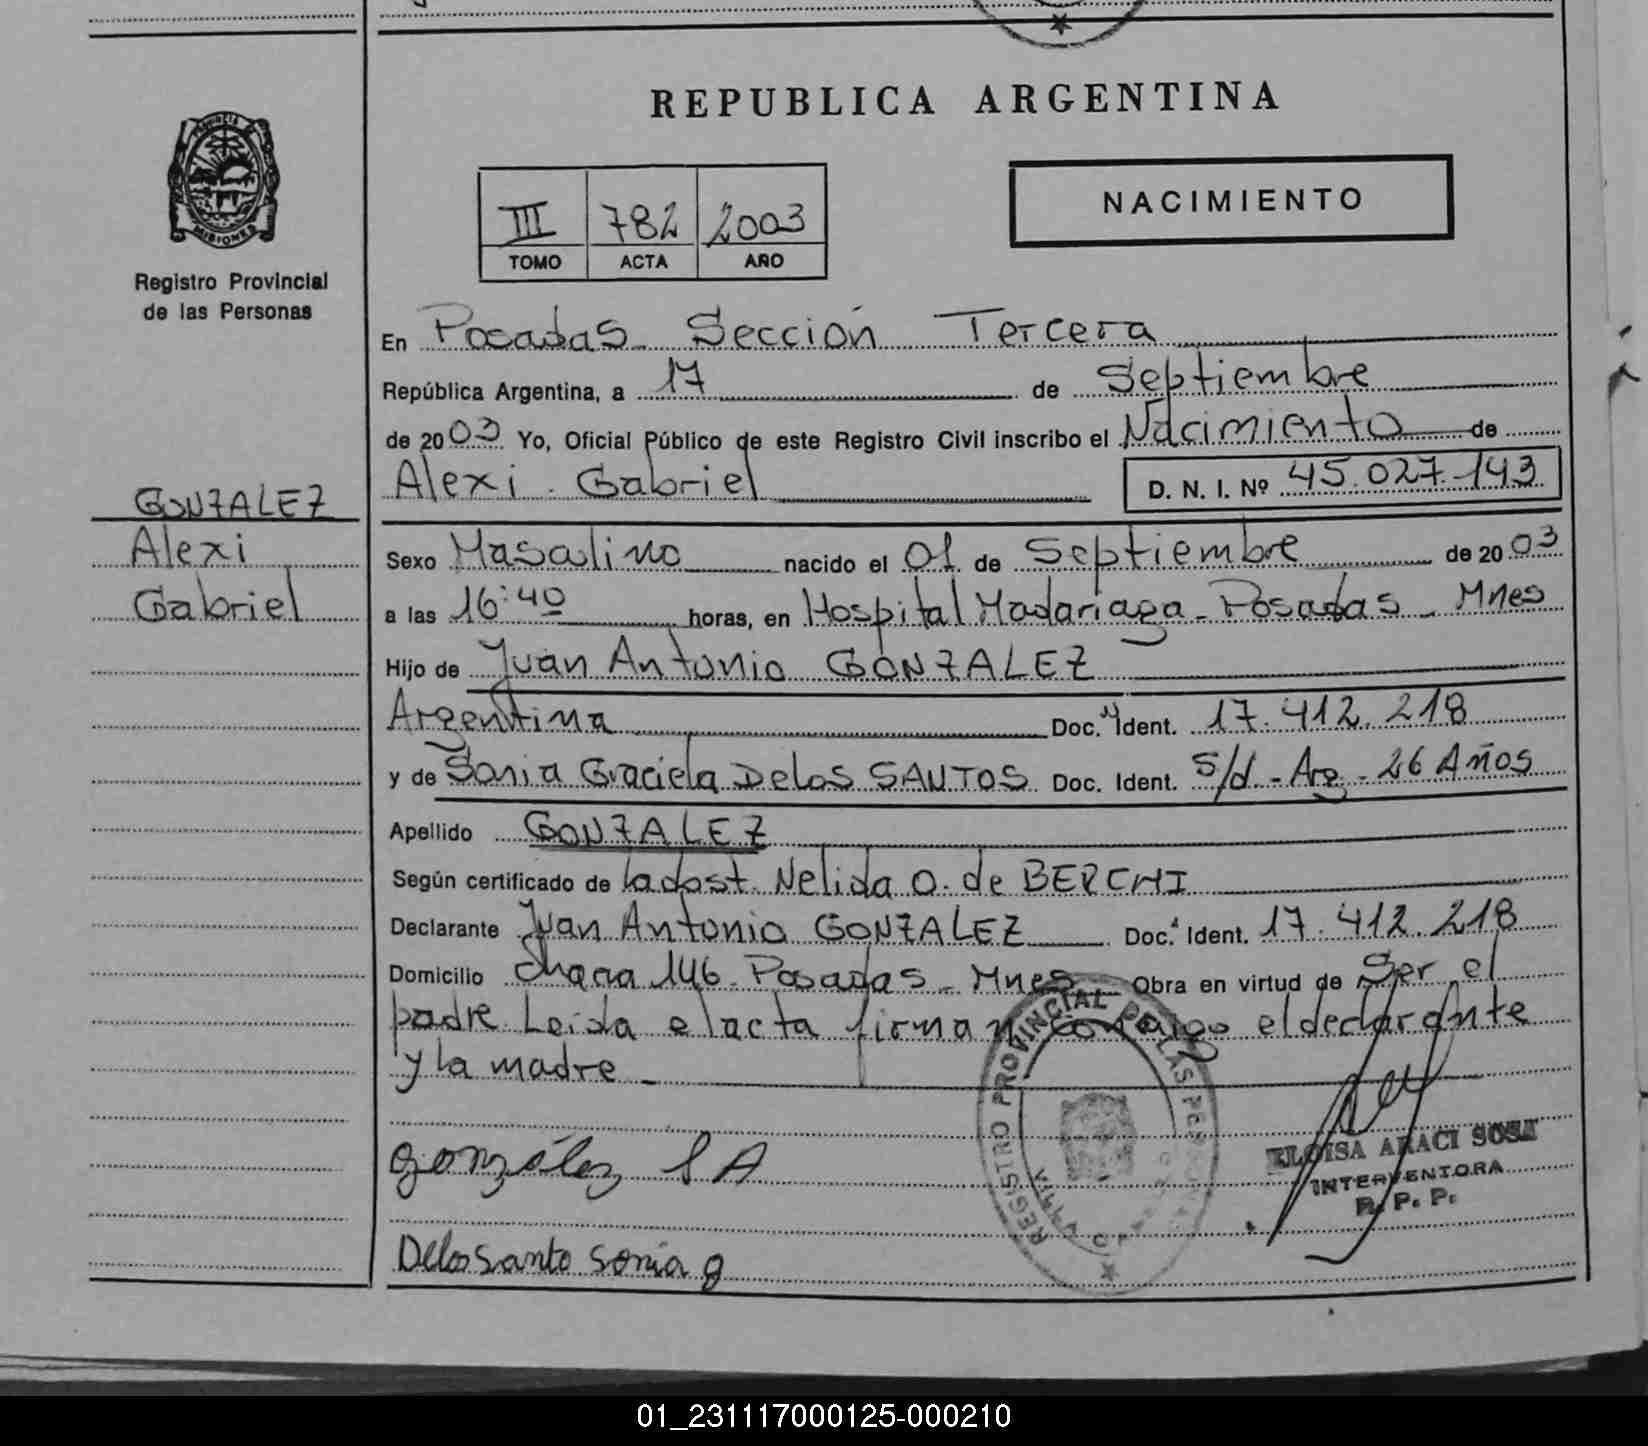 REPUBLICA ARGENTINA
PROVINCIA DE
MISIONES
Registro Provincial
de las Personas
III 782 2003
TOMO ACTA AÑO
NACIMIENTO
En Posadas Sección Tercera
República Argentina, a 17 de Septiembre
de 2003 Yo, Oficial Público de este Registro Civil inscribo el Nacimiento de
Alexi Gabriel D. N. I. Nº 45.027.143
GONZALEZ
Alexi
Gabriel
Sexo Masculino nacido el 01 de Septiembre de 2003
a las 16:40 horas, en Hospital Madariaga - Posadas - Mnes
Hijo de Juan Antonio GONZALEZ
Argentina Doc. Ident. 17.412.218
y de Sonia Graciela Delos SANTOS Doc. Ident. S/d - Arg - 26 Años
Apellido GONZALEZ
Según certificado de la dost. Nelida O. de BERCHI
Declarante Juan Antonio GONZALEZ Doc. Ident. 17.412.218
Domicilio chacra 146 - Posadas - Mnes Obra en virtud de Ser el
padre Leida el acta firman conmigo el declarante
y la madre
REGISTRO PROVINCIAL DE LAS PERSONAS
gonzález J A
ELOISA ARACI SOSA
INTERVENTORA
R. P. P.
Delossanto sonia g
01_231117000125-000210